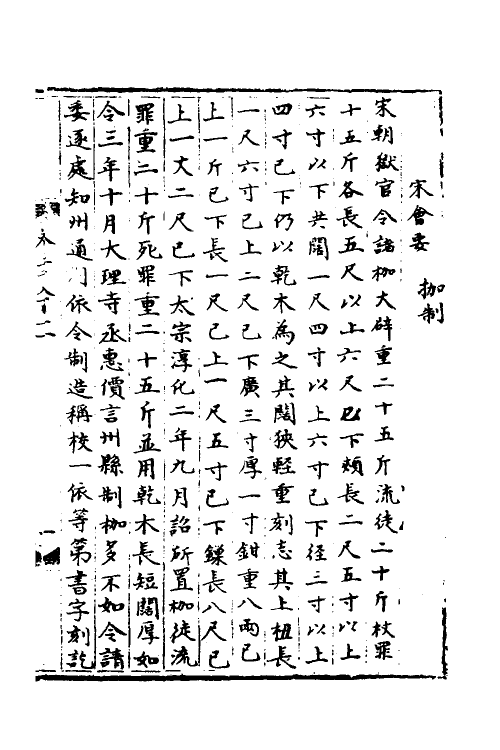 宋會要　枷制
宋朝獄官令諸枷大辟重二十五斤流徒二十斤杖罪
十五斤各長五尺以上六尺已下頰長二尺五寸以上
六寸以下共闊一尺四寸以上六寸已下徑三寸以上
四寸已下仍以乾木為之其闊狹輕重刻志其上杻長
一尺六寸已上二尺已下廣三寸厚一寸鉗重八兩已
上一斤已下長一尺已上一尺五寸已下鏁長八尺已
上一丈二尺已下太宗淳化二年九月詔所置枷徒流
罪重二十斤死罪重二十五斤並用乾木長短闊厚如
令三年十月大理寺丞惠價言州縣制枷多不如令請
委逐處知州通判依令制造稱校一依等第書字刻訖